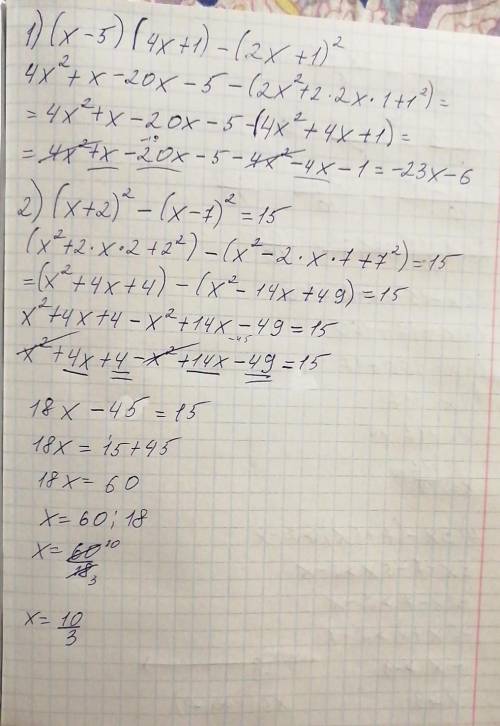 1) (x-5) (4x+1) - (2x+1)²
4x² + x - 20x - 5 - (2x² + 2·2x·1+1²) =
= 4x² + x - 20x - 5 - (4x² + 4x + 1) =
= 4x² + x - 20x - 5 - 4x² - 4x - 1 = -23x - 6
2) (x+2)² - (x-7)² = 15
(x² + 2·x·2 + 2²) - (x² - 2·x·7 + 7²) = 15
= (x² + 4x + 4) - (x² - 14x + 49) = 15
x² + 4x + 4 - x² + 14x - 49 = 15
-45
x² + 4x + 4 - x² + 14x - 49 = 15
18x - 45 = 15
18x = 15 + 45
18x = 60
x = 60 : 18
x = 60/18 10 3
x = 10/3